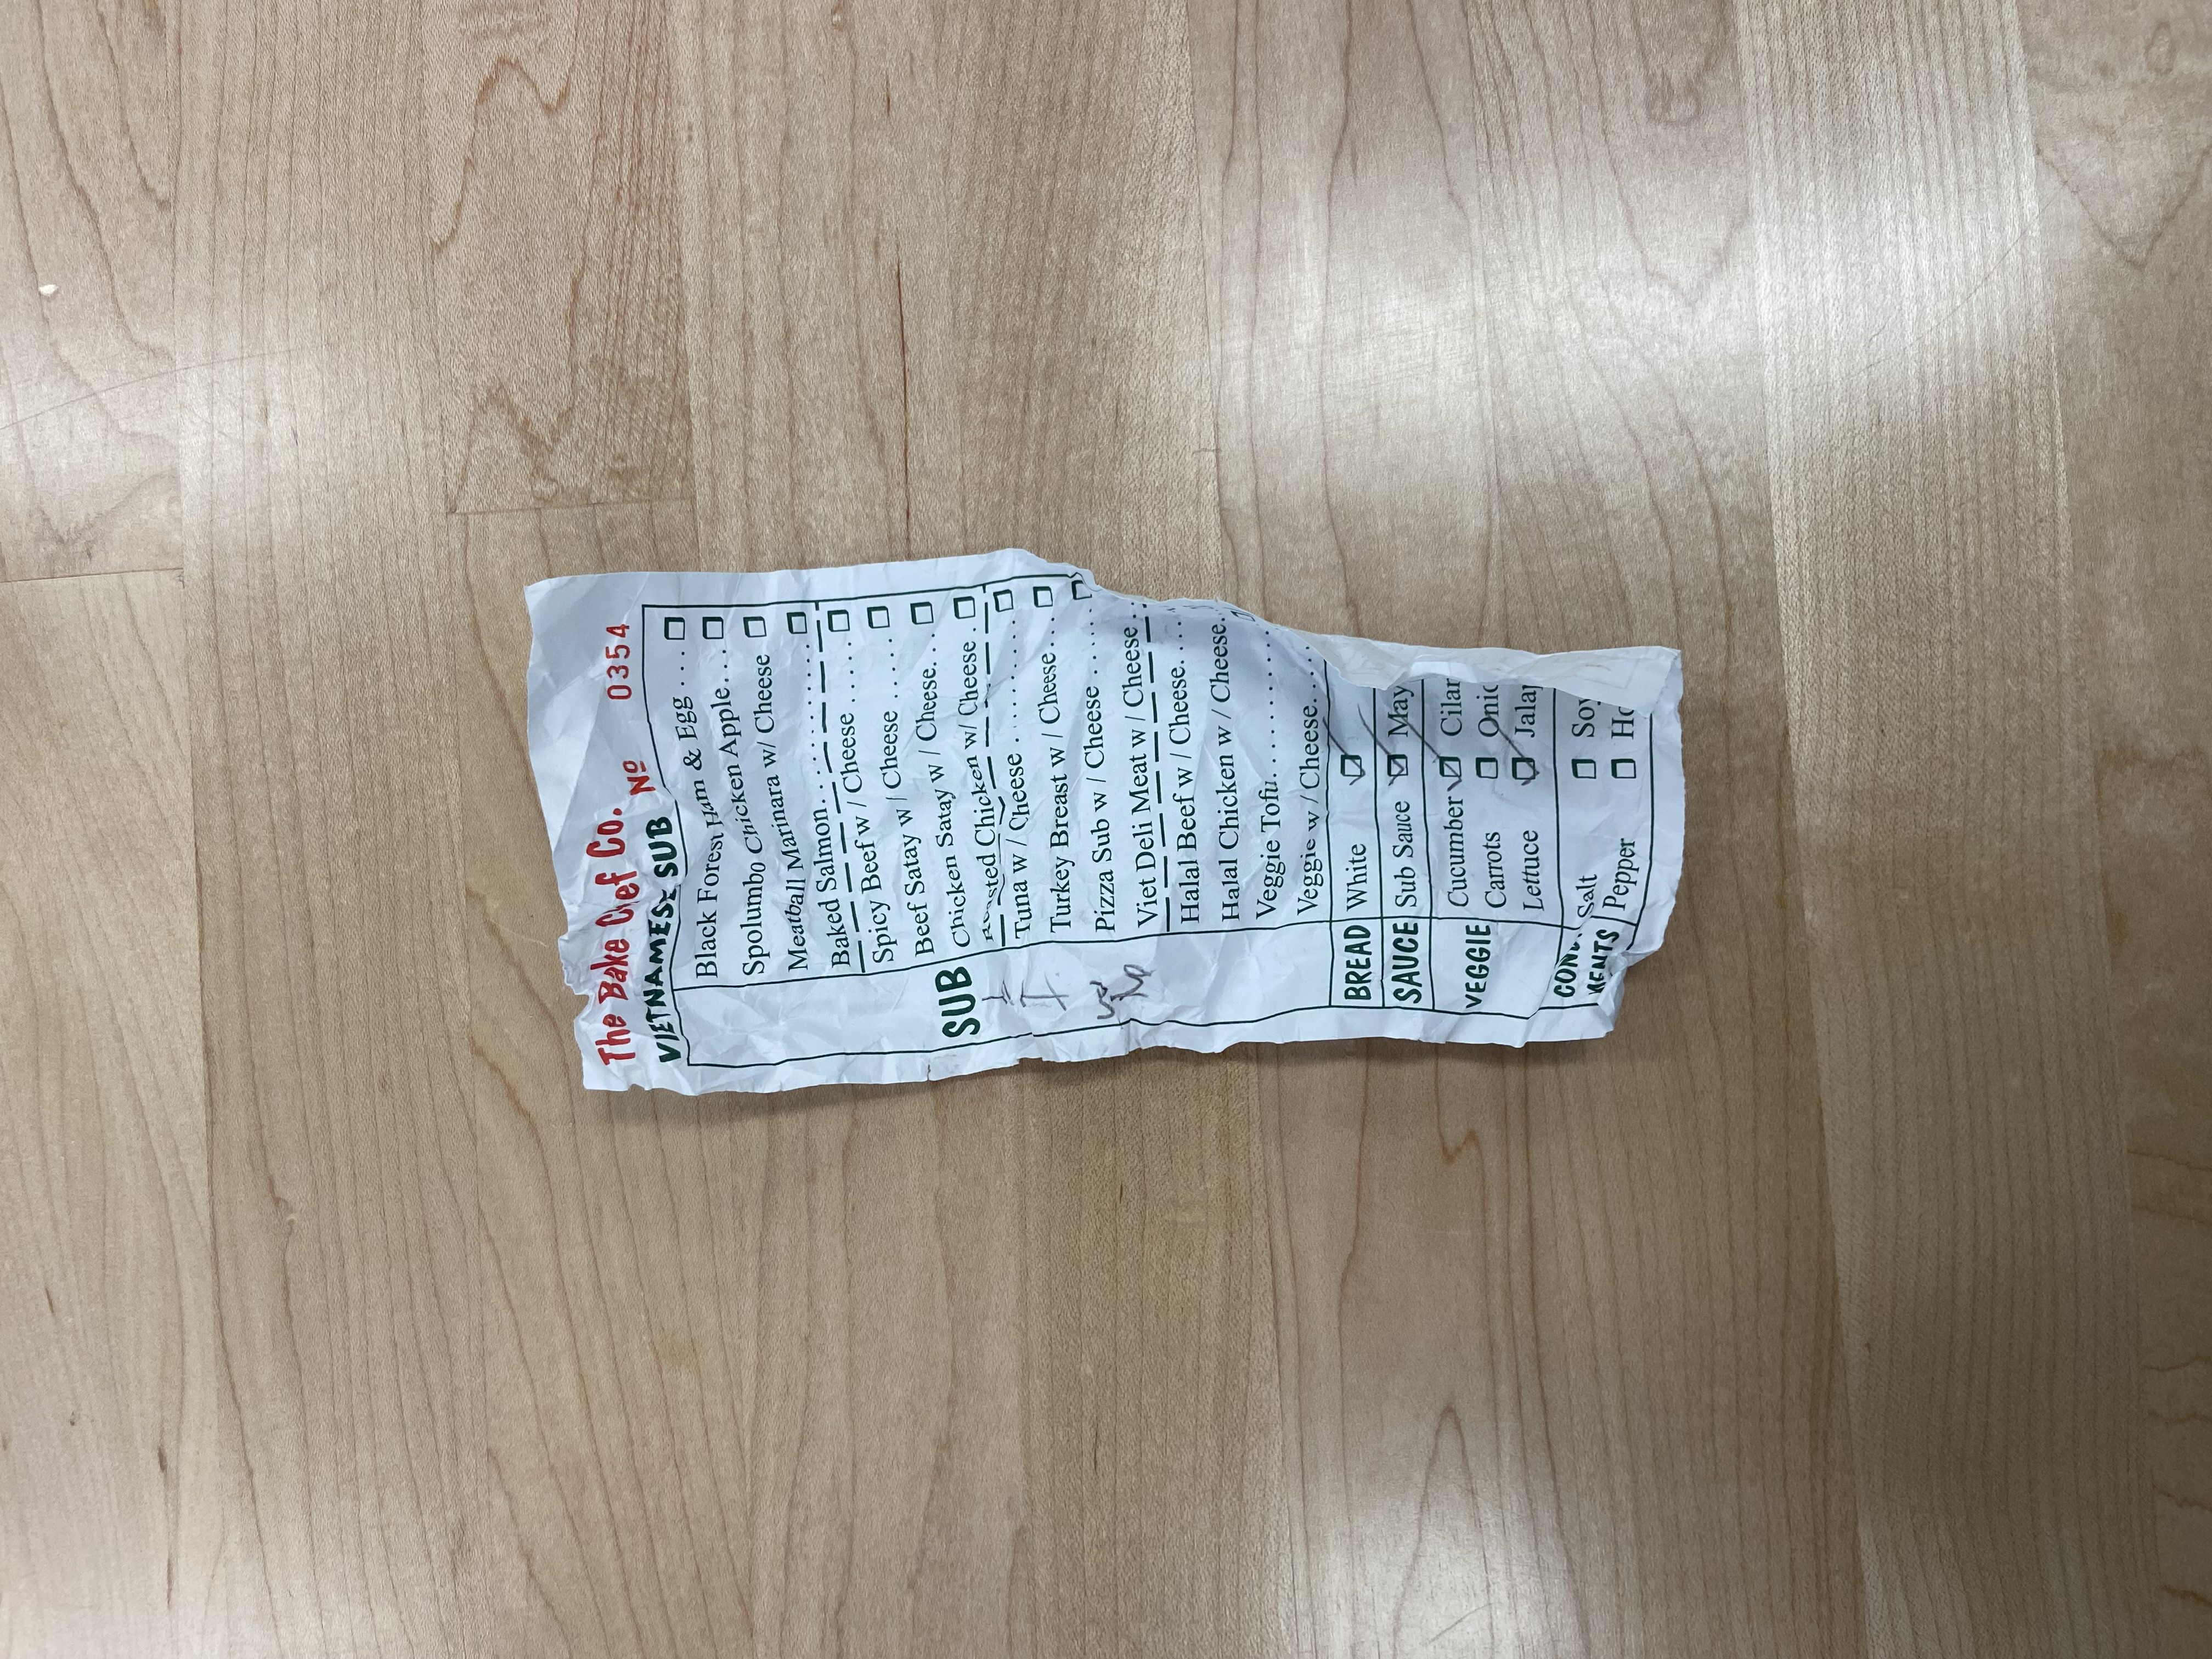 The Bake Chef Co.
VIETNAMESE SUB No 0354
Black Forest Ham & Egg ...
Spolumbo Chicken Apple...
Meatball Marinara w/ Cheese
Baked Salmon............
Spicy Beef w / Cheese .....
Beef Satay w / Cheese .....
Chicken Satay w / Cheese...
SUB
Roasted Chicken w/ Cheese .
Tuna w / Cheese ..........
Turkey Breast w / Cheese...
Pizza Sub w / Cheese ......
Viet Deli Meat w / Cheese ..
Halal Beef w / Cheese....
Halal Chicken w / Cheese..
Veggie Tofu...........
Veggie w / Cheese.....
BREAD White
SAUCE Sub Sauce May
VEGGIE
Cucumber Cilan
Carrots Onio
Lettuce Jala
Salt Soy
MENTS Pepper Ho